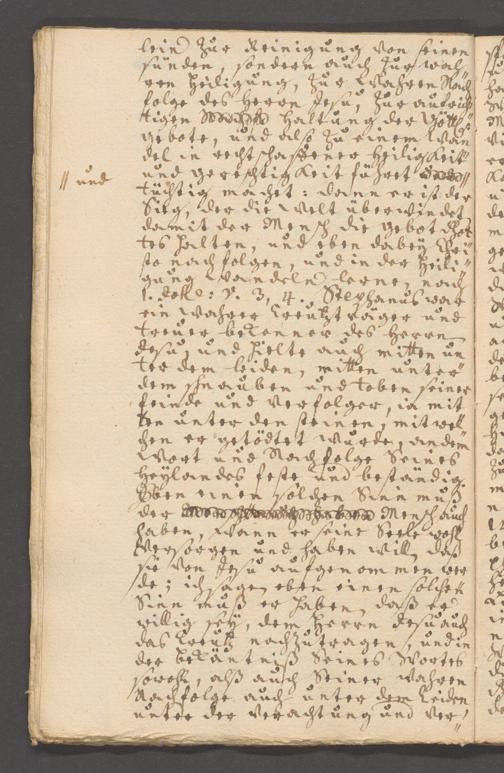 lein zur Reinigung von seinen
sünden, sondern auch zur wah„
ren Heiligung, zur wahren Nach
folge des Herrn Jesu, zur aufrich
tigen Haltung der Göttl.
gebote, und also zu einem wan
del in rechtschaffener Heiligkeit
und gerechtigkeit führet
// und
tüchtig machet: dann er ist der
Sieg, der die Welt überwindet
damit der Mensch die gebot Got
tes halten, und eben dabey
nachfolgen, und in der Heili„
gung wandeln lerne, nach
1. V. 3, 4. Stephanus war
ein wahrer Creutzträger und
treuer bekenner des Herrn
Jesu, und hielte auch mitten un
ter dem leiden, mitten unter
dem schnauben und toben seiner
feinde und verfolger, ia mit
ten unter den steinen, mit wel„
chen er getödtet wurde, an dem
Wort und Nachfolge Seines
Heylandes feste und beständig.
Eben einen solchen Sinn muß
der Mensch auch
haben, wann er seine Seele wohl
versorgen und haben will, daß
sie von Jesu aufgenommen wer
de; ich sage, eben einen solchen
Sinn muß er haben, daß er
willig sey, dem Herrn Jesu auch
das Creutz nachzutragen, und in
der bekäntniß Seines Wortes
sowohl, alß auch Seiner wahren
Nachfolge auch unter dem Leiden
unter der verachtung und ver„